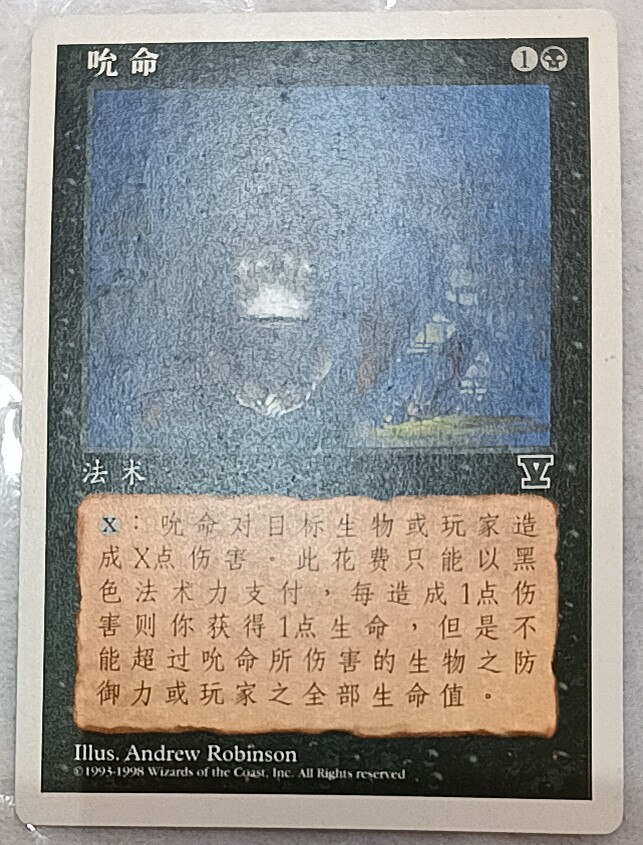 吮命 1
法术 V
X：吮命对目标生物或玩家造
成X点伤害。此花费只能以黑
色法术力支付，每造成1点伤
害则你获得1点生命，但是不
能超过吮命所伤害的生物之防
御力或玩家之全部生命值。
Illus. Andrew Robinson
©1993-1998 Wizards of the Coast, Inc. All Rights reserved